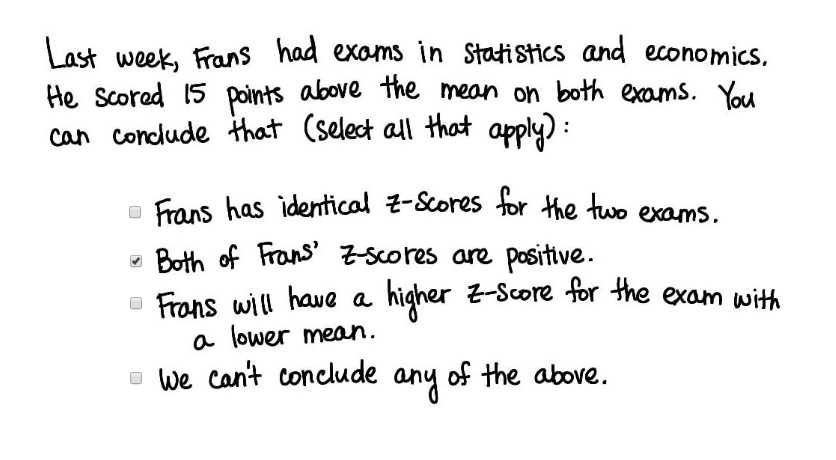 Last week, Frans had exams in statistics and economics.
He scored 15 points above the mean on both exams. You
can conclude that (select all that apply):
Frans has identical z-scores for the two exams.
Both of Frans' z-scores are positive.
Frans will have a higher z-score for the exam with
a lower mean.
We can't conclude any of the above.